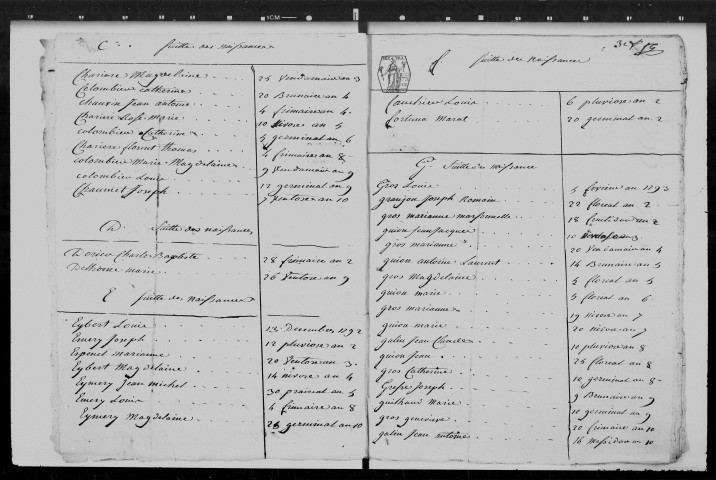 C. suitte des naissances
Chariere Magdelaine 25 Vendemaire an 3
Colombier Catherine 20 Brumaire an 4
Chauvin Jean antoine 4 frimaire an 4
Chariere Rose Marie 10 Nivose an 5
colombier Catherine 5 germinal an 6
Chariere florent thomas 4 frimaire an 8
colombier Marie Magdelaine 9 Vendemaire an 9
colombier Louis 12 germinal an 9
Chaumet Joseph 7 Ventose an 10
D. suitte des naissances
Dorier Charle Baptiste 28 frimaire an 2
Delhome marie 26 Ventose an 9
E suitte des naissances
Eybert Louis 13 Decembre 1792
Emery Joseph 12 pluviose an 2
Espinet marianne 20 Ventose an 3
Eybert Magdelaine 14 nivose an 4
Eymery Jean michel 30 prairial an 5
Emery Louis 4 frimaire an 8
Eymery Magdelaine 28 germinal an 10
f. suitte des naissances
Louis 6 pluviose an 2
fortuna Marat 20 germinal an 2
G. suitte des naissance
Gros Louis 5 fevrier an 1793
granjon Joseph Romain 22 floreal an 2
gros marianne 18 an 2
guion Jean Jacques 10 an 3
gros marianne 20 Vendemaire an 4
guion antoine Laurent 14 Brumaire an 5
gros Magdelaine 5 floreal an 5
guion marie 5 floreal an 6
gros marianne 19 nivose an 7
guion marie 20 nivose an 7
galin Jean Claude 10 pluviose an 8
guion Jean 25 floreal an 8
gros Catherine 10 germinal an 8
Joseph 9 Brumaire an 9
guilhaud marie 10 germinal an 9
gros geneviève 20 frimaire an 10
galin Jean antoine 16 messidor an 10